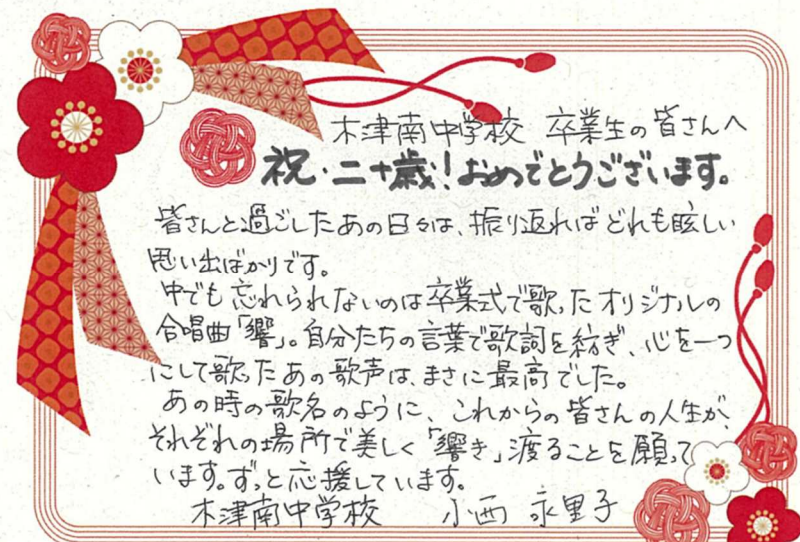 木津南中学校 卒業生の皆さんへ
祝・二十歳！おめでとうございます。
皆さんと過ごしたあの日々は、振り返ればどれも眩しい
思い出ばかりです。
中でも忘れられないのは卒業式で歌ったオリジナルの
合唱曲「響」。自分たちの言葉で歌詞を紡ぎ、心を一つ
にして歌ったあの歌声は、まさに最高でした。
あの時の歌名のように、これからの皆さんの人生が、
それぞれの場所で美しく「響き」渡ることを願って
います。ずっと応援しています。
木津南中学校 小西 永里子